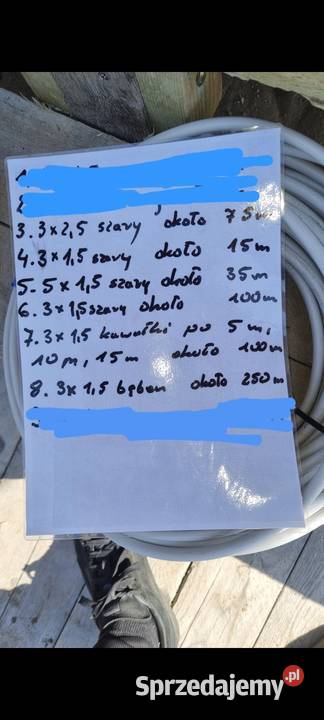 3. 3x2,5 szary około 75m
4. 3x1,5 szary około 15m
5. 5x1,5 szary około 35m
6. 3x1,5 szary około 100m
7. 3x1,5 kawałki po 5m,
10m, 15m około 100m
8. 3x1,5 bęben około 250m
Sprzedajemy.pl